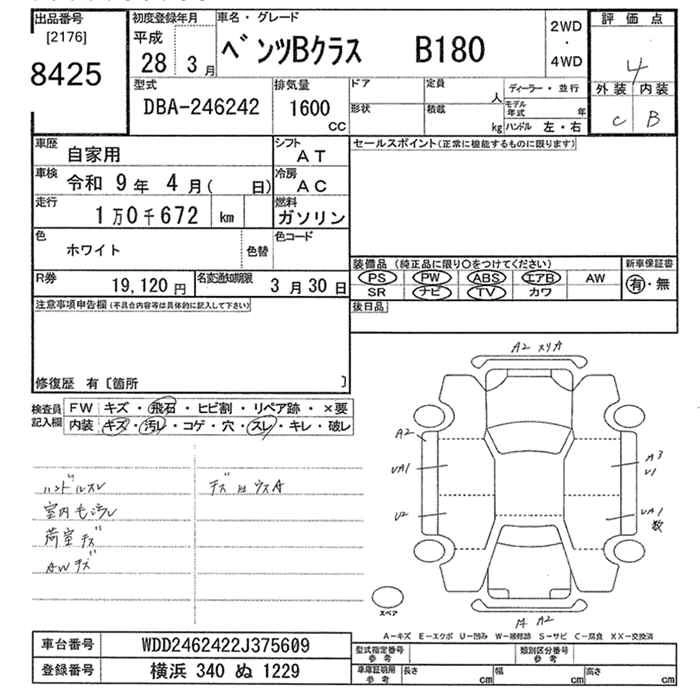 出品番号
[2176]
8425
初度登録年月
平成
28 3月
車名・グレード
ベンツBクラス B180
2WD
・
4WD
評価点
4
外装 内装
C B
型式
DBA-246242
排気量
1600
CC
ドア
形状
定員
人
積載
kg
ディーラー・並行
モデル年式 年
ハンドル 左・右
車歴
自家用
シフト
AT
車検
令和 9年 4月( 日)
冷房
AC
走行
1万0千672 km
燃料
ガソリン
色
ホワイト
色替
色コード
R券
19,120円
名変通知期限
3月30日
セールスポイント(正常に機能するものに限ります)
装備品 (純正品に限り○をつけてください)
新車保証書
PS PW ABS エアB AW
SR ナビ TV カワ
有・無
後日品
注意事項申告欄(不具合内容等は具体的に記入して下さい)
修復歴 有〔箇所 〕
検査員記入欄
FW キズ・飛石・ヒビ割・リペア跡・×要
内装 キズ・汚レ・コゲ・穴・スレ・キレ・破レ
ハンドルスレ
室内モ汚レ
荷室キズ
AWキズ
キズはウスA
A2 スリキ
A2
UA1
U2
A3
U1
UA1
数
A2
スペア
A-キズ E-エクボ U-凹み W-補修跡 S-サビ C-腐食 XX-交換済
車台番号
WDD2462422J375609
登録番号
横浜 340 ぬ 1229
型式指定番号
参考
類別区分番号
参考
車庫証明用
参考
長さ cm
幅 cm
高さ cm